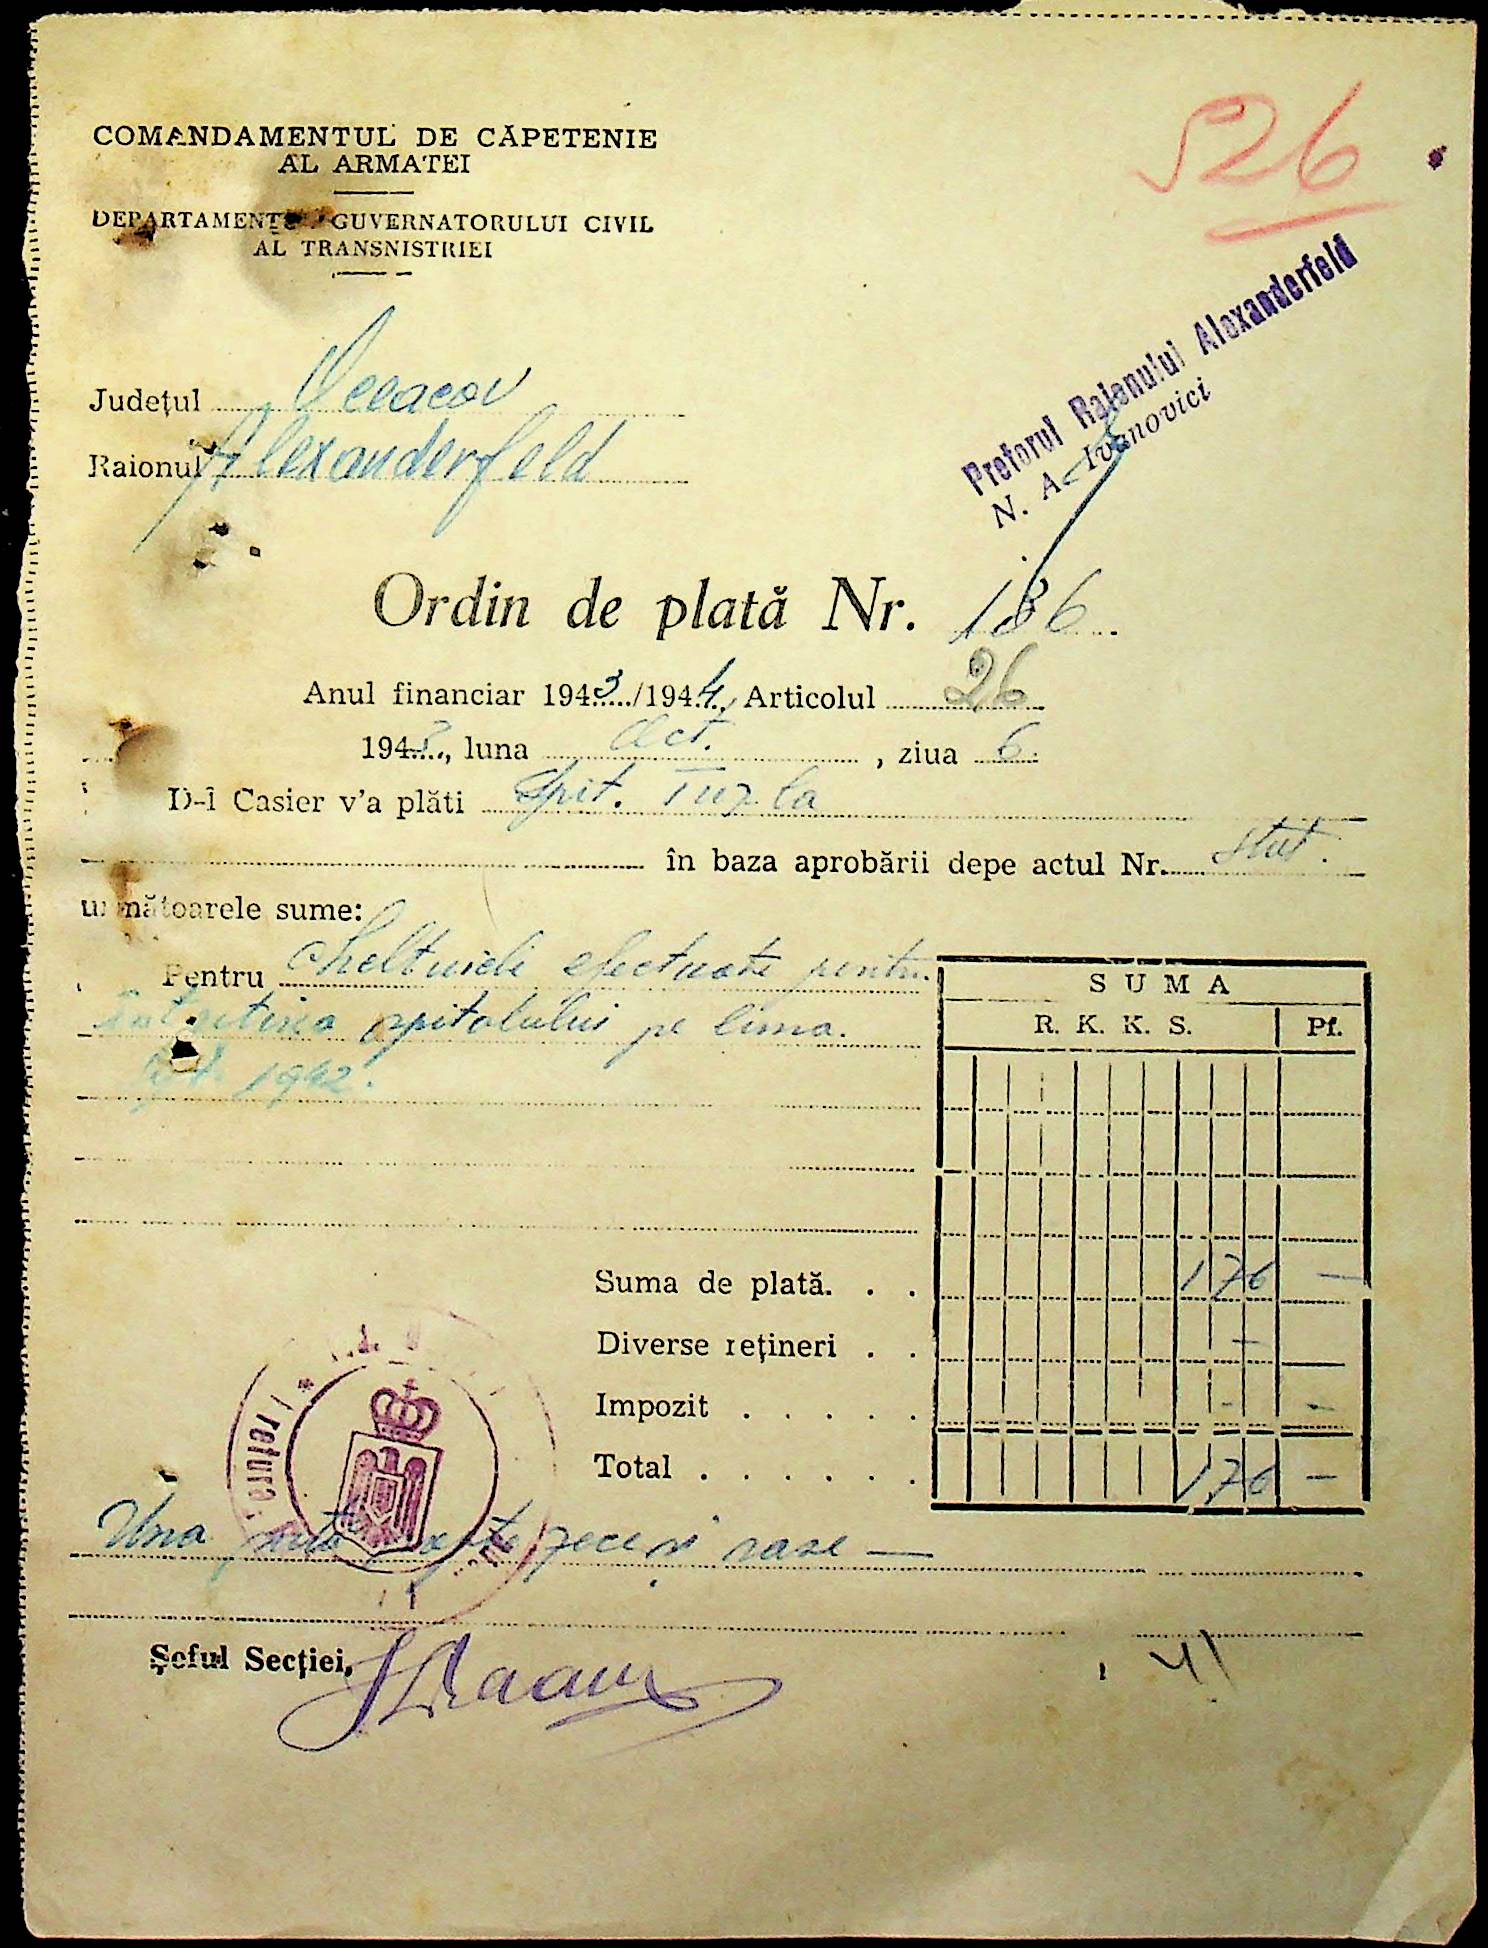 526
COMANDAMENTUL DE CĂPETENIE
AL ARMATEI
DEPARTAMENTUL GUVERNATORULUI CIVIL
AL TRANSNISTRIEI
Pretorul Raionului Alexanderfeld
N. A. Ivanovici
Județul Oceacov
Raionul Alexanderfeld
Ordin de plată Nr. 136
Anul financiar 1943/1944, Articolul 26
1943, luna Oct., ziua 6
D-l Casier v'a plăti Spit. Tuzla
în baza aprobării depe actul Nr. Stat.
următoarele sume:
Pentru Cheltuieli efectuate pentru
spitalului pe luna
1942.
SUMA
R. K. K. S. Pf.
Suma de plată. . . 176 —
Diverse rețineri . . —
Impozit . . . . . - -
Total . . . . . . 176 —
Una sută șapte zeci și șase —
Pretura
Șeful Secției,
41